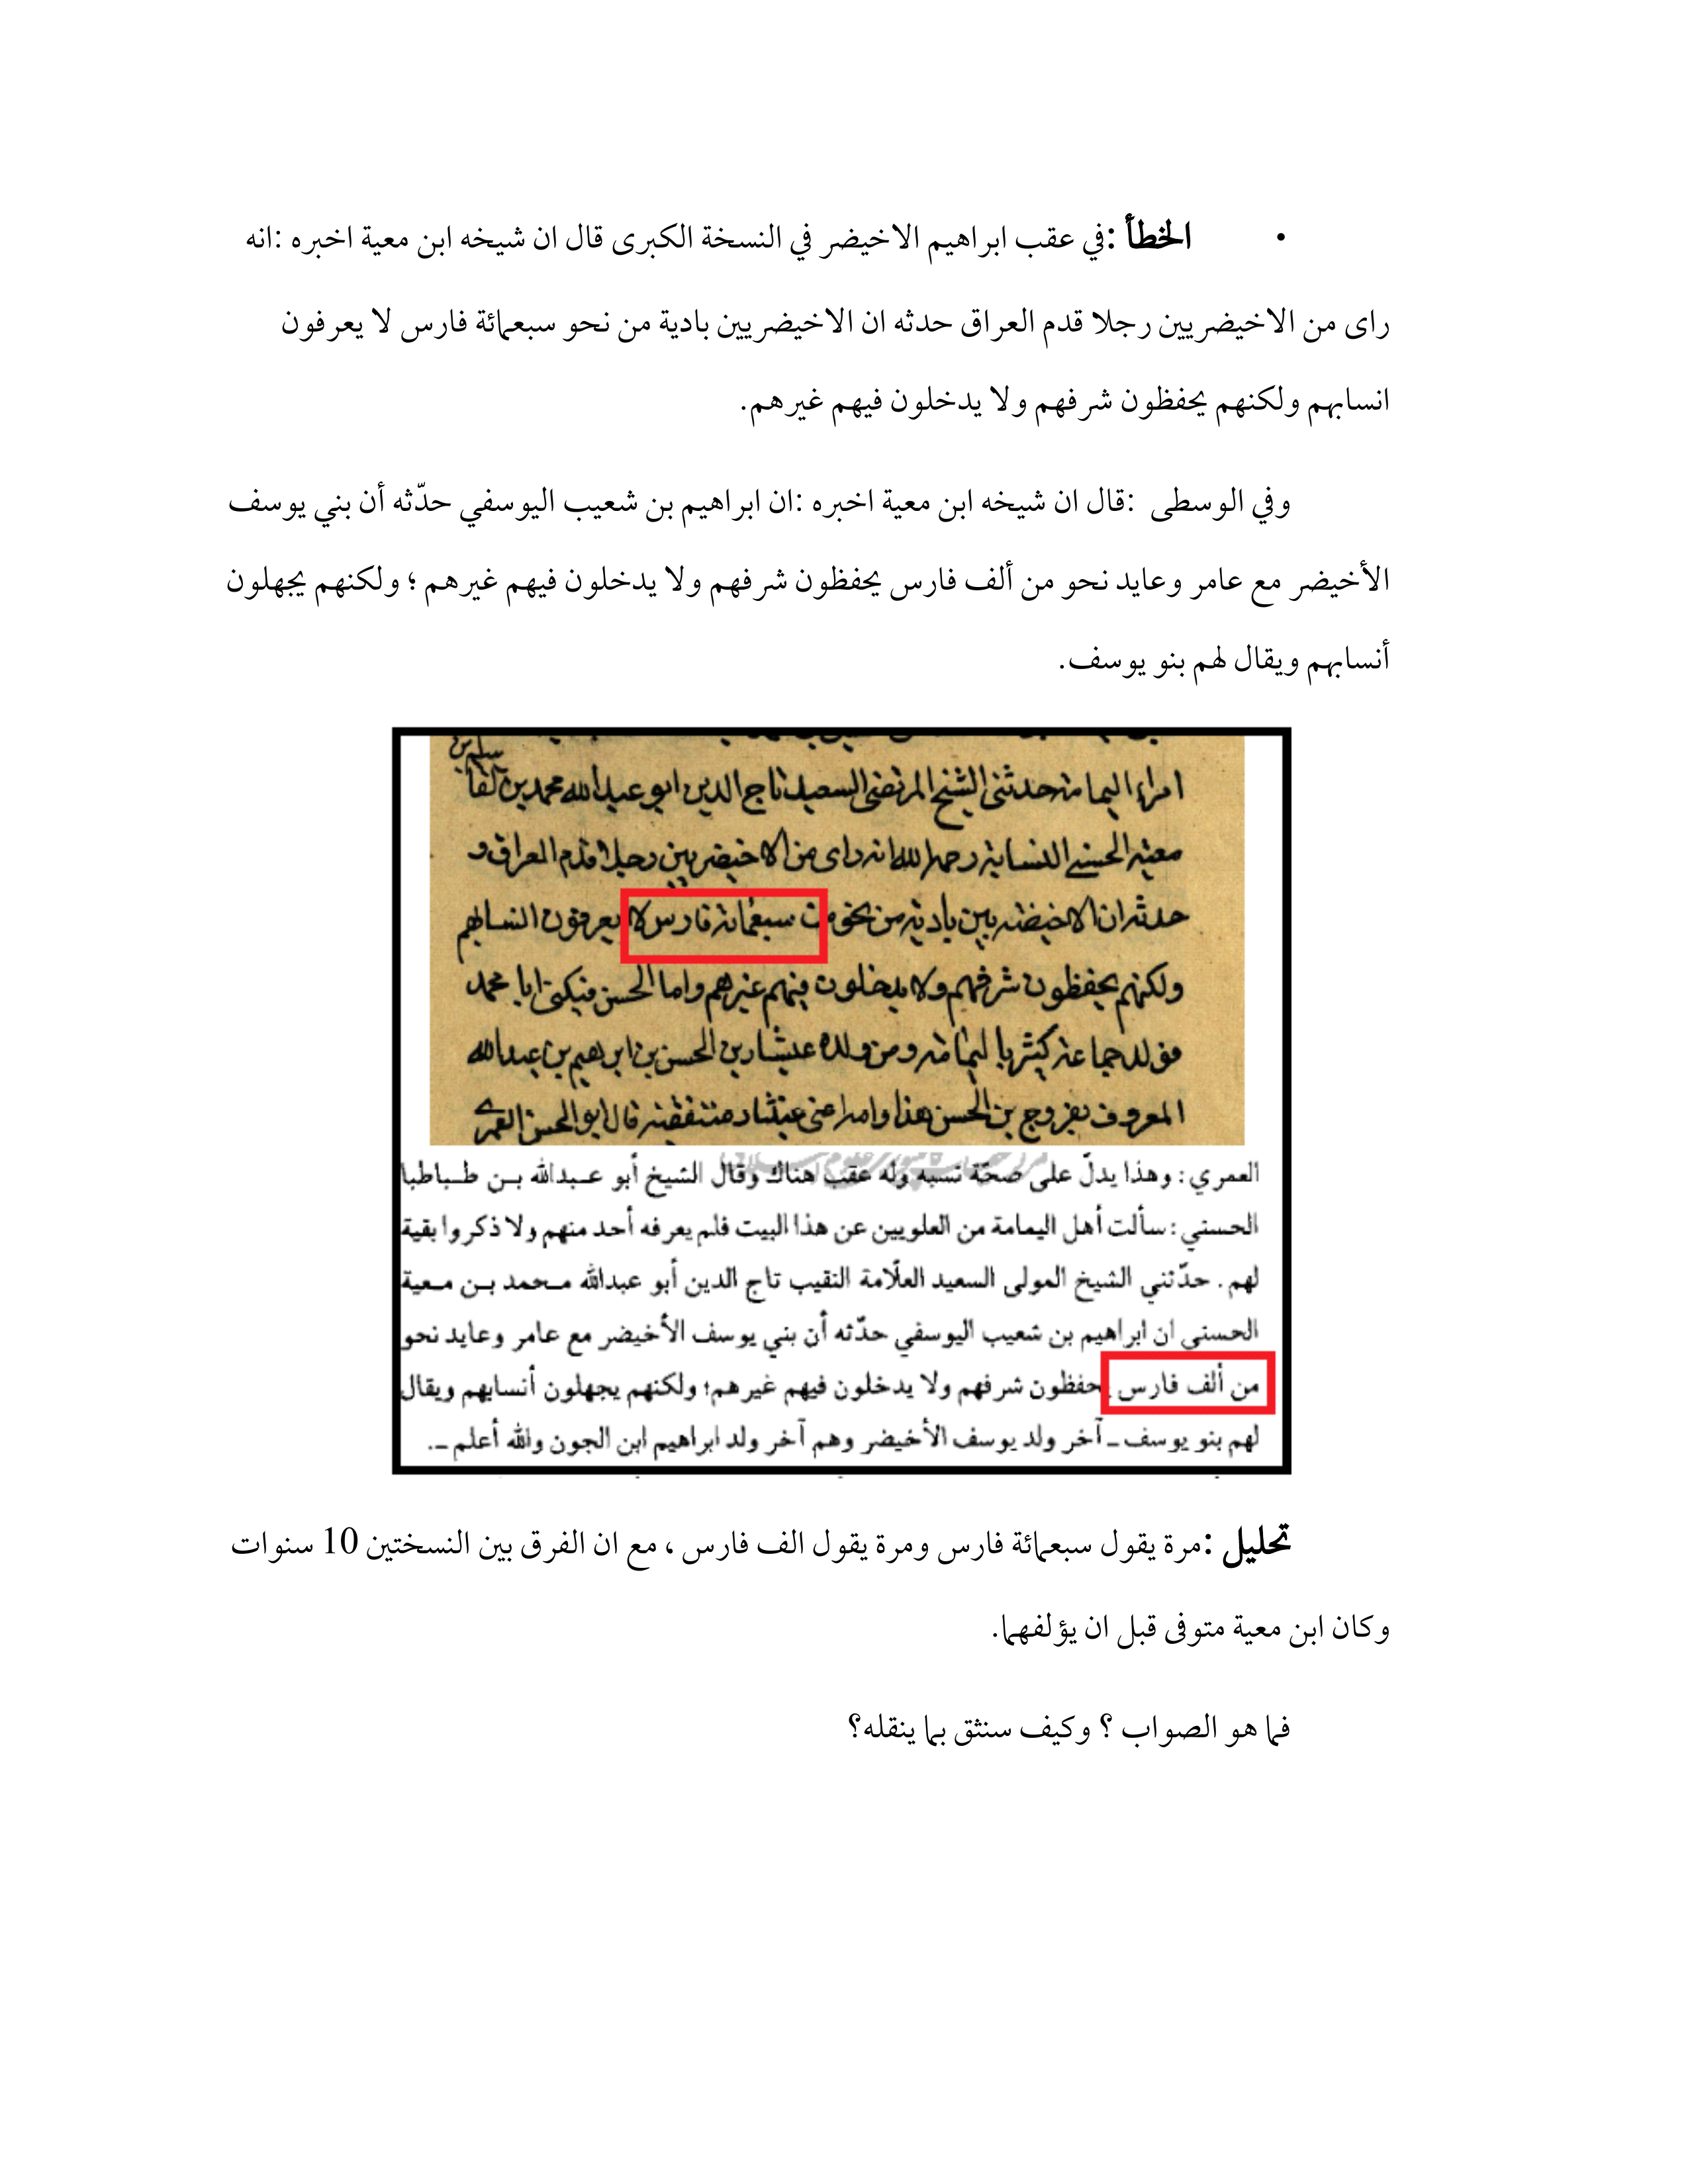 • الخطأ :في عقب ابراهيم الاخيضر في النسخة الكبرى قال ان شيخه ابن معية اخبره :انه
راى من الاخيضريين رجلا قدم العراق حدثه ان الاخيضريين بادية من نحو سبعمائة فارس لا يعرفون
انسابهم ولكنهم يحفظون شرفهم ولا يدخلون فيهم غيرهم.
وفي الوسطى :قال ان شيخه ابن معية اخبره :ان ابراهيم بن شعيب اليوسفي حدّثه أن بني يوسف
الأخيضر مع عامر وعايد نحو من ألف فارس يحفظون شرفهم ولا يدخلون فيهم غيرهم ؛ ولكنهم يجهلون
أنسابهم ويقال لهم بنو يوسف.
امراء اليمامة حدثني الشيخ المرتضى السعيد تاج الدين ابو عبدالله محمد بن
معية الحسني النسابة رحمه الله انه راى من الاخيضريين رجلا قدم العراق و
حدثه ان الاخيضريين بادية من نحو من سبعمائة فارس لا يعرفون انسابهم
ولكنهم يحفظون شرفهم ولا يدخلون فيهم غيرهم واما الحسن فيكنى ابا محمد
فولد جماعة كثير باليمامة ومن ولده الحسن بن ابرهيم بن عبدالله
المعروف بن الحسن هذا وامه قال ابو الحسن العمري
العمري: وهذا يدلّ على صحّة نسبه وله عقب هناك وقال الشيخ أبو عبدالله بن طباطبا
الحسني: سألت أهل اليمامة من العلويين عن هذا البيت فلم يعرفه أحد منهم ولا ذكروا بقية
لهم. حدّثني الشيخ المولى السعيد العلّامة النقيب تاج الدين أبو عبدالله محمد بن معية
الحسني ان ابراهيم بن شعيب اليوسفي حدّثه أن بني يوسف الأخيضر مع عامر وعايد نحو
من ألف فارس يحفظون شرفهم ولا يدخلون فيهم غيرهم؛ ولكنهم يجهلون أنسابهم ويقال
لهم بنو يوسف ـ آخر ولد يوسف الأخيضر وهم آخر ولد ابراهيم ابن الجون والله أعلم ـ.
تحليل :مرة يقول سبعمائة فارس ومرة يقول الف فارس ، مع ان الفرق بين النسختين 10 سنوات
وكان ابن معية متوفى قبل ان يؤلفهما.
فما هو الصواب ؟ وكيف سنثق بما ينقله؟